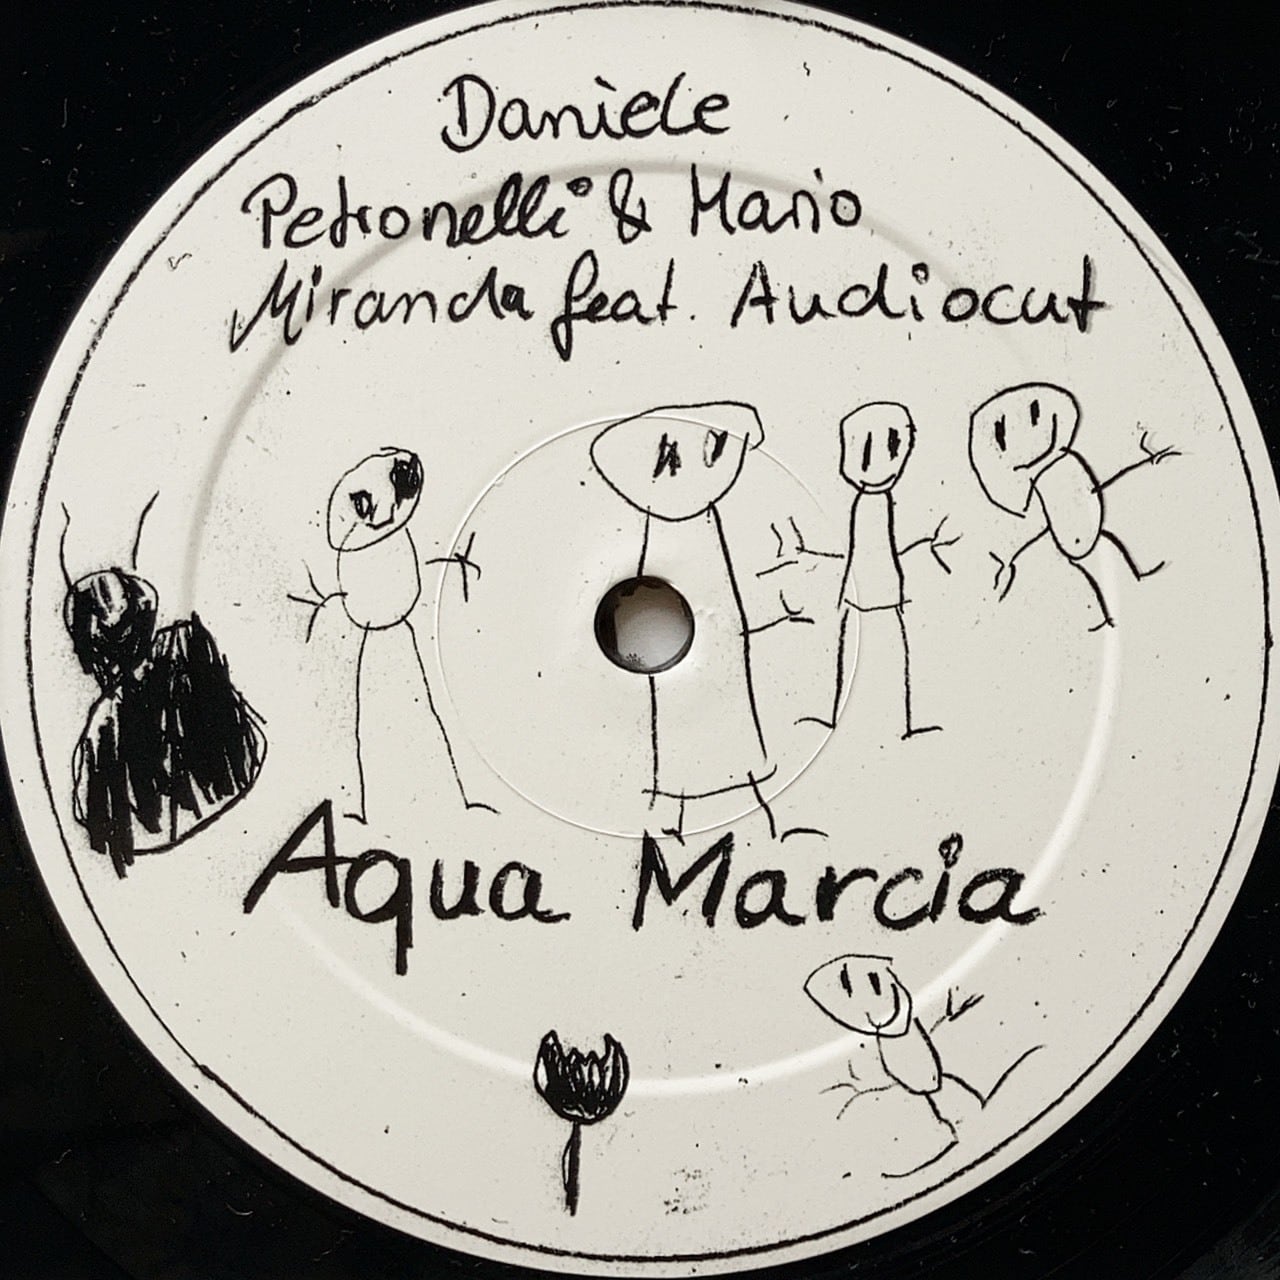 Daniele
Petronelli & Mario
Miranda feat. Audiocut
Aqua Marcia